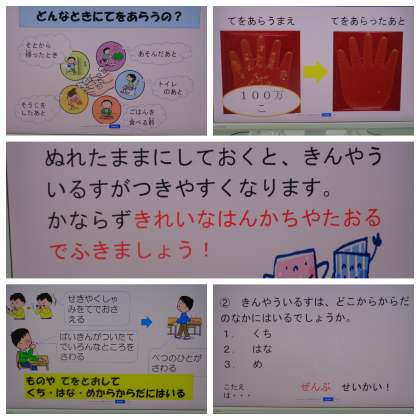 どんなときにてをあらうの？
そとから
帰ったとき
あそんだあと
トイレ
のあと
そうじを
したあと
ごはんを
食べる前
てをあらうまえ
てをあらったあと
１００万
こ
ぬれたままにしておくと、きんやう
いるすがつきやすくなります。
かならずきれいなはんかちやたおる
でふきましょう！
せきやくしゃ
みをてでおさ
える
ばいきんがついたて
でいろんなところを
さわる
べつのひとが
さわる
ものや てをとおして
くち・はな・めからからだにはいる
② きんやういるすは、どこからからだ
のなかにはいるでしょうか。
１． くち
２． はな
３． め
こたえ
は・・・
ぜんぶ せいかい！